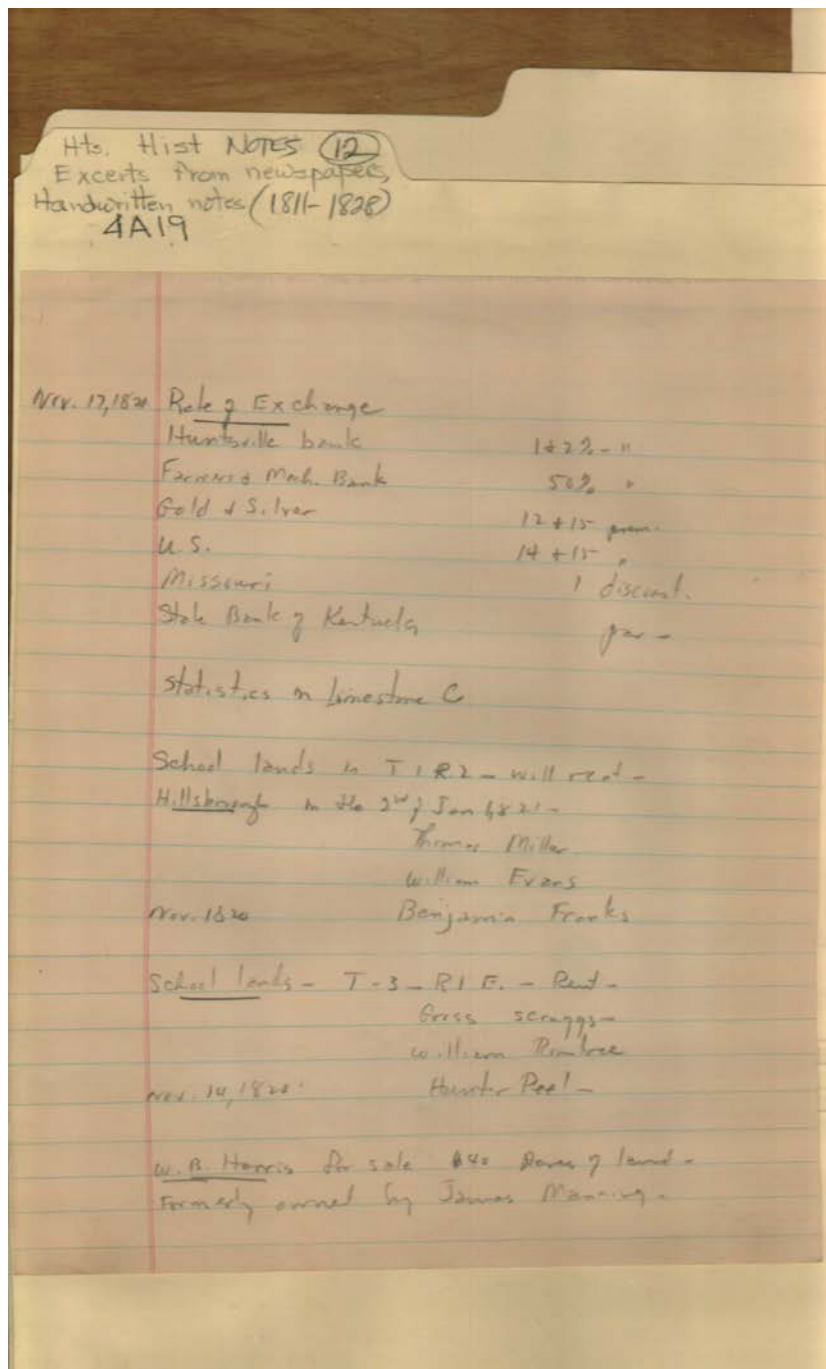 Hts. Hist NOTES 12
Excerts from newspapers,
Handwritten notes (1811-1828)
4A19
Nov. 17, 1820 Rate of Exchange
Huntsville bank 1 + 2% - "
Farmers & Mech. Bank 50% "
Gold & Silver 12 + 15 prem.
U.S. 14 + 15 "
Missouri 1 discount.
State Bank of Kentucky par -
Statistics on Limestone C
School lands in T 1 R 2 - will rent -
Hillsborough on the 2nd of Jan 1821 -
Thomas Miller
William Evans
Nov. 1820 Benjamin Franks
School lands - T-3 - R1 E. - Rent -
Gross Scruggs -
William
Nov. 14, 1820. Hunter Peel -
W. B. Harris for sale 640 acres of land -
Formerly owned by James Manning -